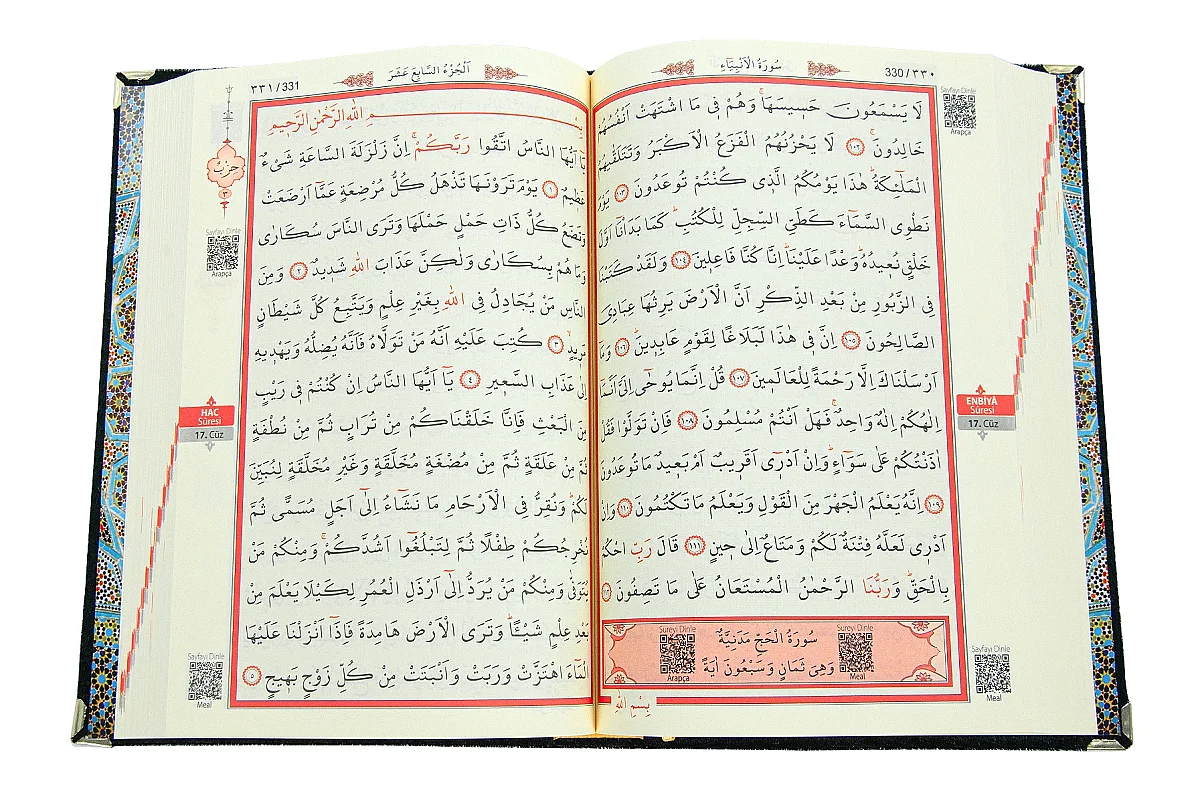 ٣٣٠ / 330
سُورَةُ الْاَنْبِيَاءِ
Sayfayı Dinle
Arapça
لَا يَسْمَعُونَ حَسِيسَهَاۚ وَهُمْ فٖى مَا اشْتَهَتْ اَنْفُسُهُمْ
خَالِدُونَۚ ﴿١٠٢﴾ لَا يَحْزُنُهُمُ الْفَزَعُ الْاَكْبَرُ وَتَتَلَقّٰيهُمُ
الْمَلٰٓئِكَةُؕ هٰذَا يَوْمُكُمُ الَّذٖى كُنْتُمْ تُوعَدُونَ ﴿١٠٣﴾ يَوْمَ
نَطْوِى السَّمَٓاءَ كَطَىِّ السِّجِلِّ لِلْكُتُبِؕ كَمَا بَدَاْنَٓا اَوَّلَ
خَلْقٍ نُعٖيدُهُؕ وَعْدًا عَلَيْنَاؕ اِنَّا كُنَّا فَاعِلٖينَ ﴿١٠٤﴾ وَلَقَدْ كَتَبْنَا
فِى الزَّبُورِ مِنْ بَعْدِ الذِّكْرِ اَنَّ الْاَرْضَ يَرِثُهَا عِبَادِىَ
الصَّالِحُونَ ﴿١٠٥﴾ اِنَّ فٖى هٰذَا لَبَلَاغًا لِقَوْمٍ عَابِدٖينَؕ ﴿١٠٦﴾ وَمَٓا
اَرْسَلْنَاكَ اِلَّا رَحْمَةً لِلْعَالَمٖينَ ﴿١٠٧﴾ قُلْ اِنَّمَا يُوحٰٓى اِلَىَّ اَنَّمَٓا
اِلٰهُكُمْ اِلٰهٌ وَاحِدٌۚ فَهَلْ اَنْتُمْ مُسْلِمُونَ ﴿١٠٨﴾ فَاِنْ تَوَلَّوْا فَقُلْ
اٰذَنْتُكُمْ عَلٰى سَوَٓاءٍؕ وَاِنْ اَدْرٖٓى اَقَرٖيبٌ اَمْ بَعٖيدٌ مَا تُوعَدُونَ
﴿١٠٩﴾ اِنَّهُ يَعْلَمُ الْجَهْرَ مِنَ الْقَوْلِ وَيَعْلَمُ مَا تَكْتُمُونَ ﴿١١٠﴾ وَاِنْ
اَدْرٖى لَعَلَّهُ فِتْنَةٌ لَكُمْ وَمَتَاعٌ اِلٰى حٖينٍ ﴿١١١﴾ قَالَ رَبِّ احْكُمْ
بِالْحَقِّؕ وَرَبُّنَا الرَّحْمٰنُ الْمُسْتَعَانُ عَلٰى مَا تَصِفُونَ ﴿١١٢﴾
سُورَةُ الْحَجِّ مَدَنِيَّةٌ
وَهِىَ ثَمَانٍ وَسَبْعُونَ اٰيَةً
Sureyi Dinle
Meal
Sureyi Dinle
Arapça
بِسْمِ اللّٰهِ
ENBİYÂ
Sûresi
17. Cüz
Sayfayı Dinle
Meal
٣٣١ / 331
اَلْجُزْءُ السَّابِعَ عَشَرَ
حِزْبْ
٣
Sayfayı Dinle
Arapça
بِسْمِ اللّٰهِ الرَّحْمٰنِ الرَّحٖيمِ
يَٓا اَيُّهَا النَّاسُ اتَّقُوا رَبَّكُمْۚ اِنَّ زَلْزَلَةَ السَّاعَةِ شَىْءٌ
عَظٖيمٌ ﴿١﴾ يَوْمَ تَرَوْنَهَا تَذْهَلُ كُلُّ مُرْضِعَةٍ عَمَّٓا اَرْضَعَتْ
وَتَضَعُ كُلُّ ذَاتِ حَمْلٍ حَمْلَهَا وَتَرَى النَّاسَ سُكَارٰى
وَمَا هُمْ بِسُكَارٰى وَلٰكِنَّ عَذَابَ اللّٰهِ شَدٖيدٌ ﴿٢﴾ وَمِنَ
النَّاسِ مَنْ يُجَادِلُ فِى اللّٰهِ بِغَيْرِ عِلْمٍ وَيَتَّبِعُ كُلَّ شَيْطَانٍ
مَرٖيدٍۙ ﴿٣﴾ كُتِبَ عَلَيْهِ اَنَّهُ مَنْ تَوَلَّاهُ فَاَنَّهُ يُضِلُّهُ وَيَهْدٖيهِ
اِلٰى عَذَابِ السَّعٖيرِ ﴿٤﴾ يَٓا اَيُّهَا النَّاسُ اِنْ كُنْتُمْ فٖى رَيْبٍ
مِنَ الْبَعْثِ فَاِنَّا خَلَقْنَاكُمْ مِنْ تُرَابٍ ثُمَّ مِنْ نُطْفَةٍ
ثُمَّ مِنْ عَلَقَةٍ ثُمَّ مِنْ مُضْغَةٍ مُخَلَّقَةٍ وَغَيْرِ مُخَلَّقَةٍ لِنُبَيِّنَ
لَكُمْؕ وَنُقِرُّ فِى الْاَرْحَامِ مَا نَشَٓاءُ اِلٰٓى اَجَلٍ مُسَمًّى ثُمَّ
نُخْرِجُكُمْ طِفْلًا ثُمَّ لِتَبْلُغُٓوا اَشُدَّكُمْۚ وَمِنْكُمْ مَنْ
يُتَوَفّٰى وَمِنْكُمْ مَنْ يُرَدُّ اِلٰٓى اَرْذَلِ الْعُمُرِ لِكَيْلَا يَعْلَمَ مِنْ
بَعْدِ عِلْمٍ شَيْـًٔاؕ وَتَرَى الْاَرْضَ هَامِدَةً فَاِذَٓا اَنْزَلْنَا عَلَيْهَا
الْمَٓاءَ اهْتَزَّتْ وَرَبَتْ وَاَنْبَتَتْ مِنْ كُلِّ زَوْجٍ بَهٖيجٍ ﴿٥﴾
HAC
Sûresi
17. Cüz
Sayfayı Dinle
Meal